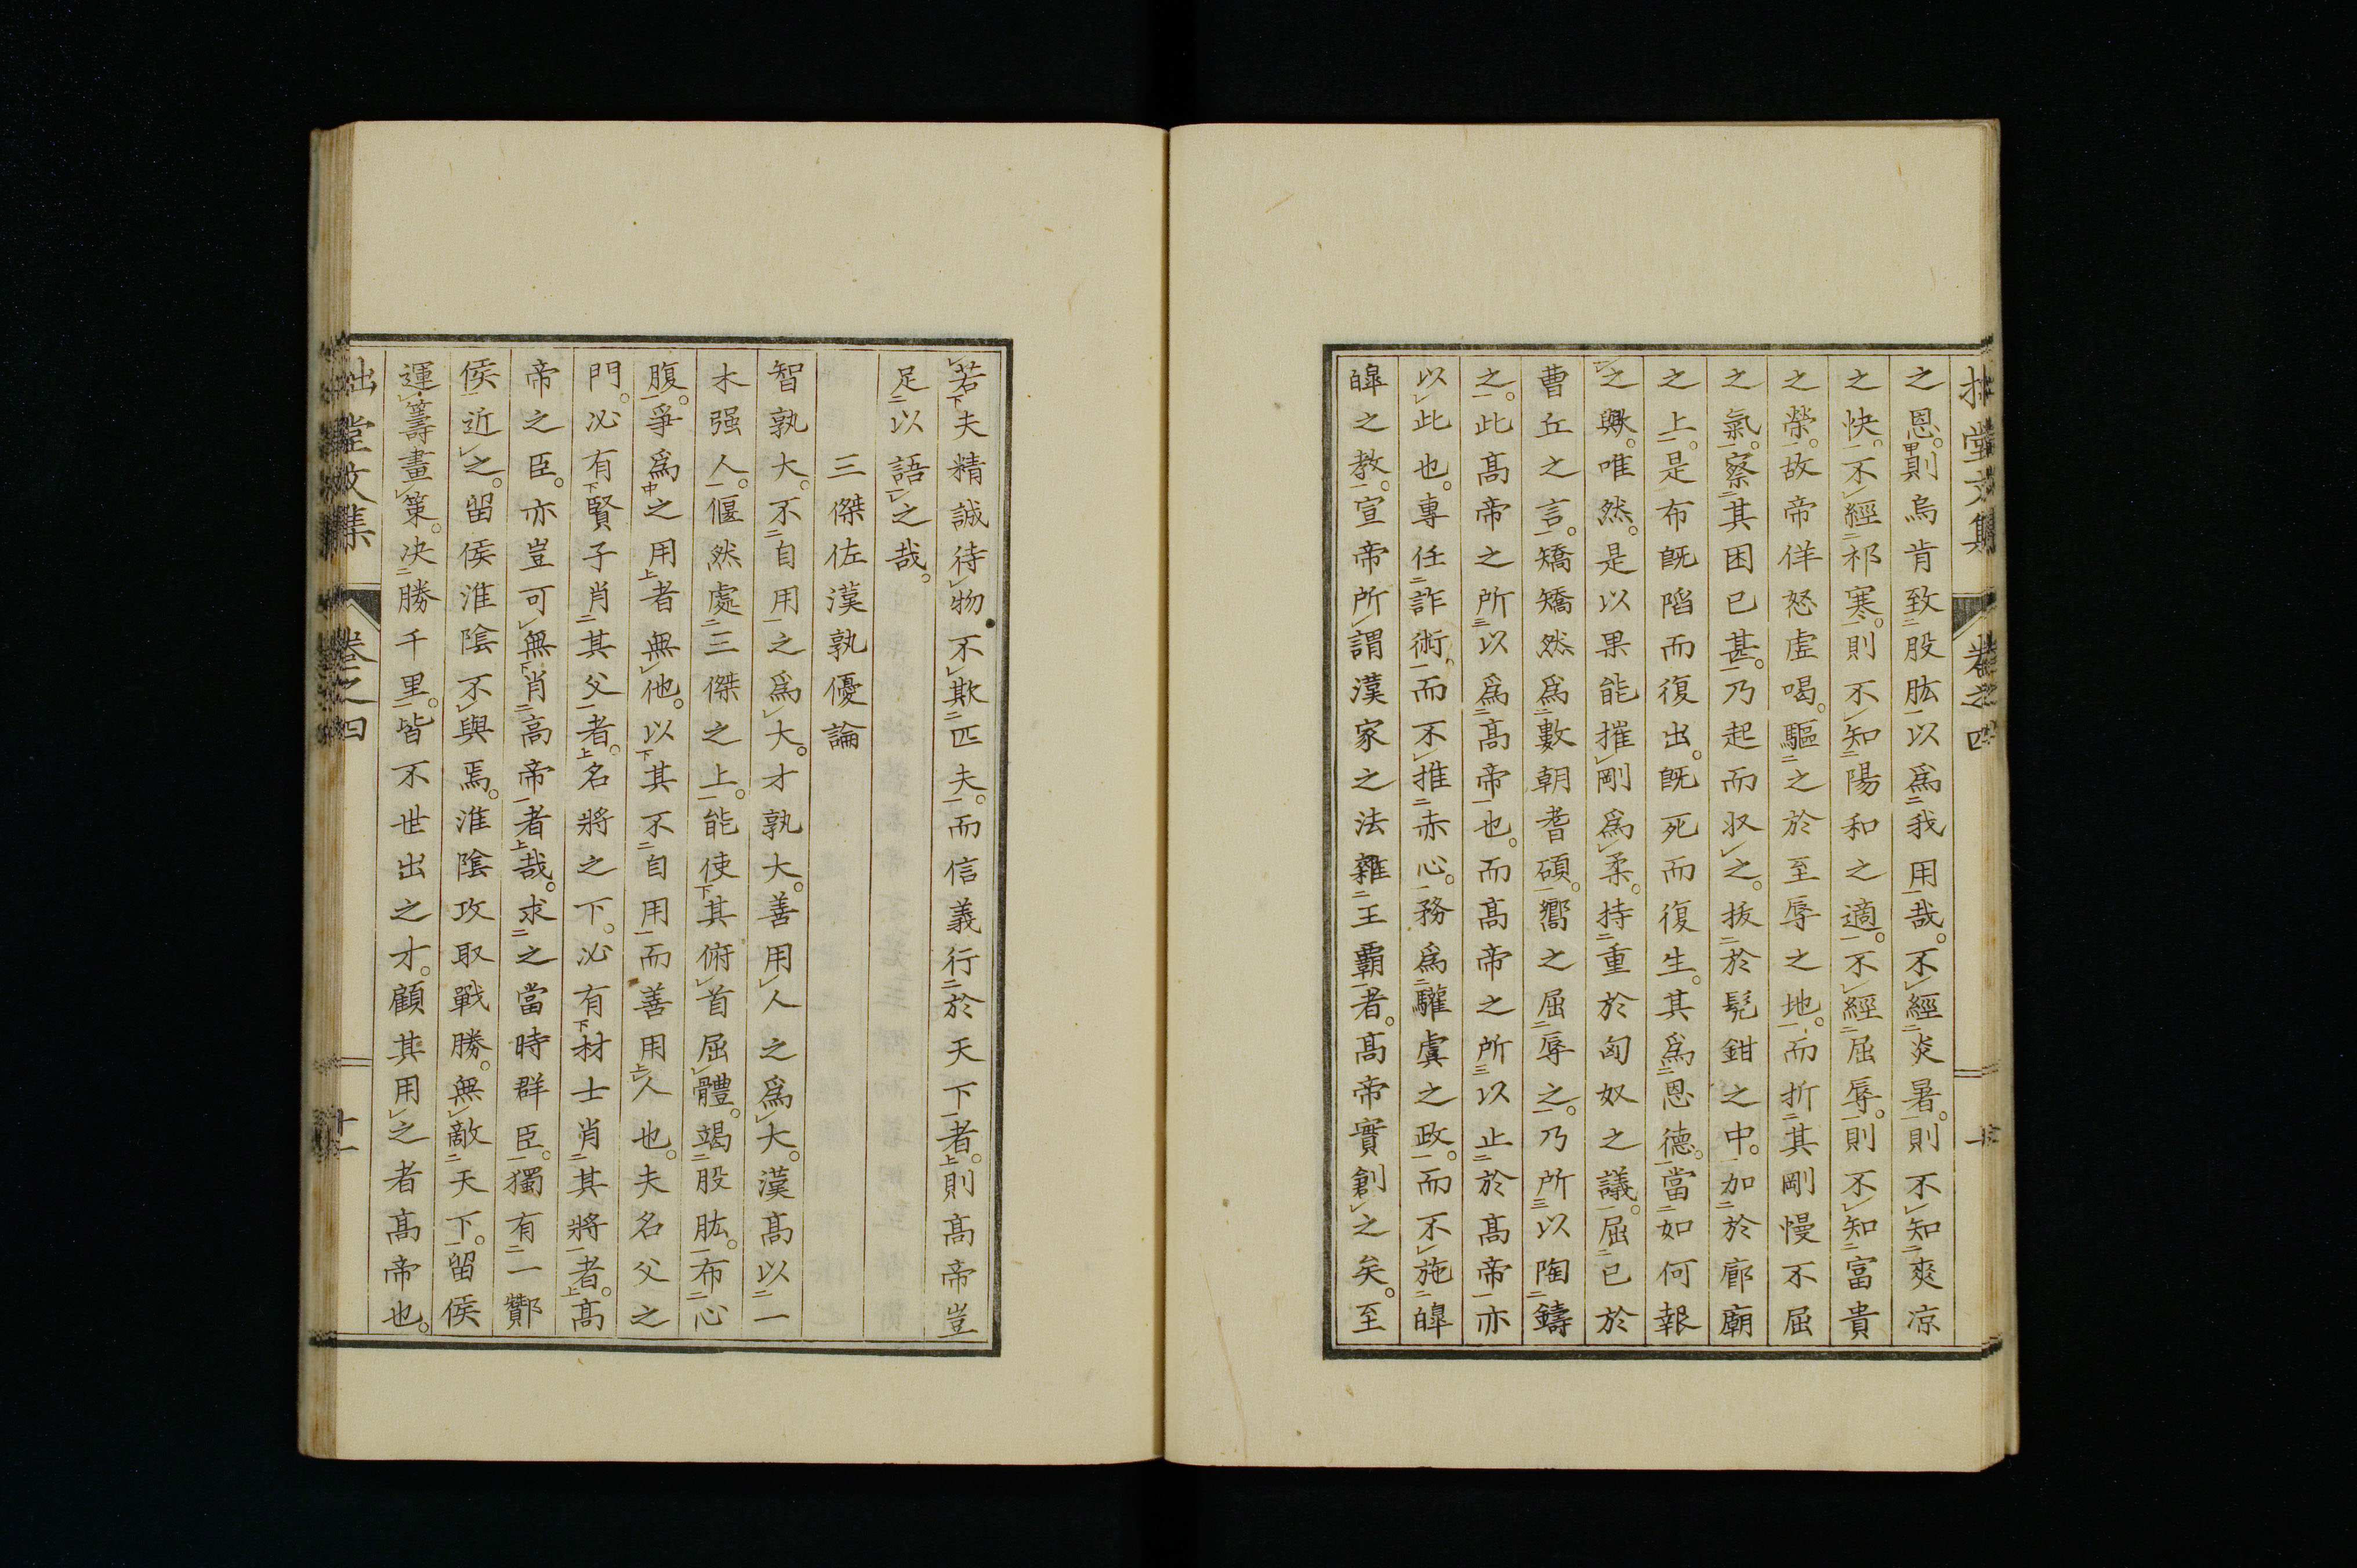 拙堂文集 卷之四 十
之恩則烏肯致股肱以爲我用哉不經炎暑則不知爽凉
之快不經祁寒則不知陽和之適不經屈辱則不知富貴
之榮故帝佯怒虚喝驅之於至辱之地而折其剛慢不屈
之氣察其困已甚乃起而収之拔於髡鉗之中加於廊廟
之上是布既陷而復出既死而復生其爲恩德當如何報
之歟唯然是以果能摧剛爲柔持重於匈奴之議屈已於
曹丘之言矯矯然爲數朝耆碩嚮之屈辱之乃所以陶鑄
之此髙帝之所以爲髙帝也而髙帝之所以止於髙帝亦
以此也專任詐術而不推赤心務爲驩虞之政而不施皥
皥之教宣帝所謂漢家之法雜王覇者髙帝實創之矣至
若夫精誠待物不欺匹夫而信義行於天下者則髙帝豈
足以語之哉
三傑佐漢孰優論
智孰大不自用之爲大才孰大善用人之爲大漢髙以一
木强人偃然處三傑之上能使其俯首屈體竭股肱布心
腹爭爲之用者無他以其不自用而善用人也夫名父之
門必有賢子肖其父者名將之下必有材士肖其將者髙
帝之臣亦豈可無肖高帝者哉求之當時群臣獨有一酇
侯近之留侯淮陰不與焉淮陰攻取戰勝無敵天下留侯
運籌畫策决勝千里皆不世出之才顧其用之者髙帝也
拙堂文集 卷之四 十一